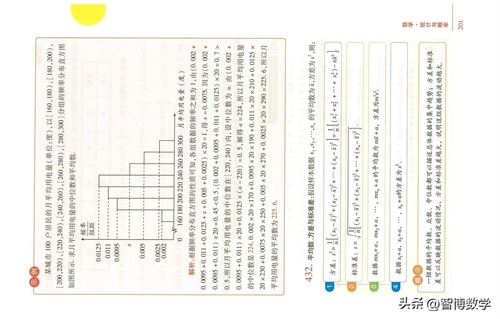 数学·统计与概率
201
示例
某城市 100 户居民的月平均用电量(单位:度),以[160,180),[180,200),
[200,220),[220,240),[240,260),[260,280),[280,300]分组的频率分布直方图
如图所示.求月平均用电量的中位数及平均数.
频率
组距
0.0125
0.011
0.0095
x
0.005
0.0025
0.002
0 160 180 200 220 240 260 280 300 月平均用电量(度)
解析:根据频率分布直方图的性质可知,各组数据的频率之和为 1,由(0.002+
0.0095+0.011+0.0125+x+0.005+0.0025)×20=1,得 x=0.0075.因为(0.002+
0.0095+0.011)×20=0.45<0.5,(0.002+0.0095+0.011+0.0125)×20=0.7>
0.5,所以月平均用电量的中位数在[220,240)内,设中位数为 a.由(0.002+
0.0095+0.011)×20+0.0125×(a-220)=0.5,解得 a=224,所以月平均用电量
的中位数是 224.0.002×20×170+0.0095×20×190+0.011×20×210+0.0125×
20×230+0.0075×20×250+0.005×20×270+0.0025×20×290=225.6,所以月
平均用电量的平均数为 225.6.
432. 平均数、方差与标准差:假设样本数据 x₁,x₂,…,xₙ 的平均数为 x̄,方差为 s²,则:
1 方差:
2 标准差:
3 数据 mx₁+a,mx₂+a,…,mxₙ+a 的平均数为 mx̄+a,方差为 m²s².
4 数据 x₁+a,x₂+a,…,xₙ+a 的方差为 s².
一组数据的平均数、众数、中位数都可以描述总体数据的集中趋势;方差和标准
差可以反映数据的波动情况,方差和标准差越大,说明这组数据的波动越大.
头条 @智博数学